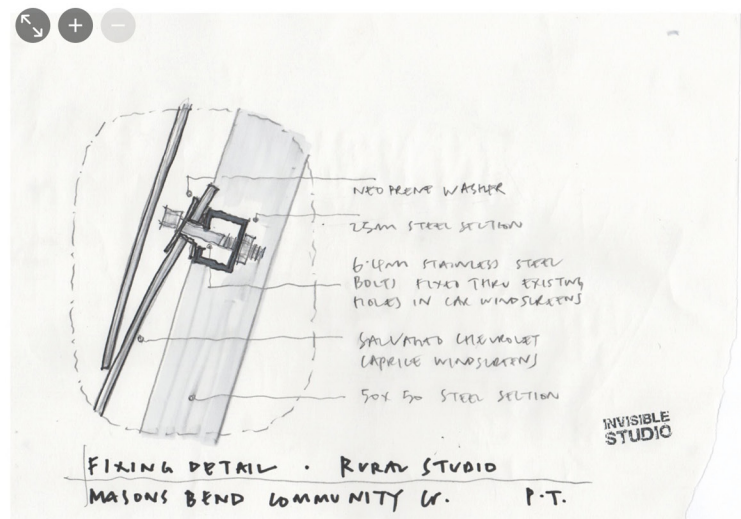 NEOPRENE WASHER
25mm STEEL SECTION
6.4mm STAINLESS STEEL
BOLTS FIXED THRU EXISTING
HOLES IN CAR WINDSCREENS
SALVAGED CHEVROLET
CAPRICE WINDSCREENS
50x50 STEEL SECTION
INVISIBLE
STUDIO
FIXING DETAIL · RURAL STUDIO
MASONS BEND COMMUNITY Cr. P.T.